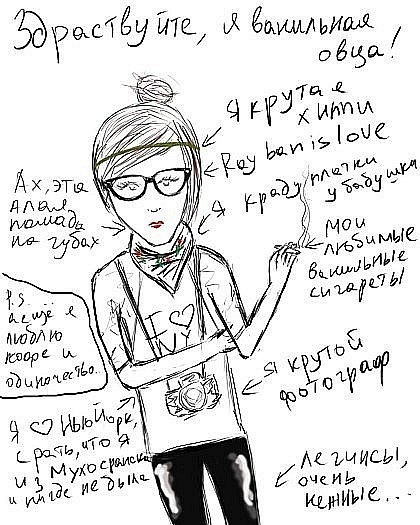 Здраствуйте, я ванильная
овца!
Я крутая
хиппи
Ray ban is love
Я краду платки
у бабушки
Ах, эта
алая
помада
на губах
мои
любимые
ванильные
сигареты
P.S.
а ещё я
люблю
кофе и
одиночество.
I ♡
NY
Я крутой
фотограф
Я ♡ Нью Йорк,
срать, что я
из Мухосранска
и нигде не была
легинсы,
очень
нежные...